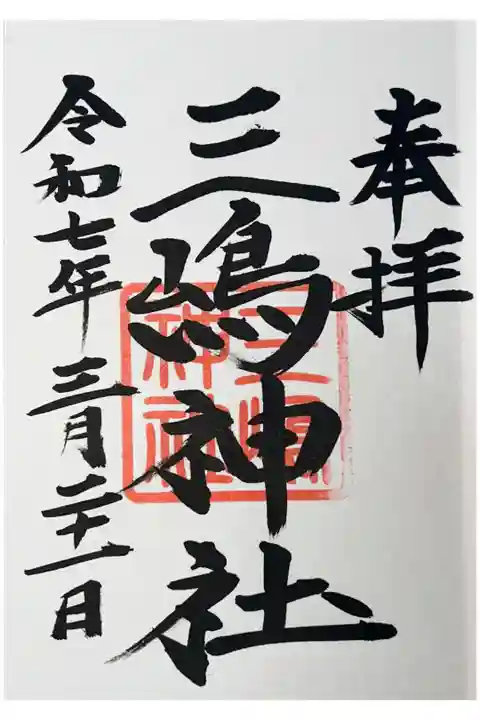 奉拝
三嶋神社
令和七年三月二十一日
三嶋神社